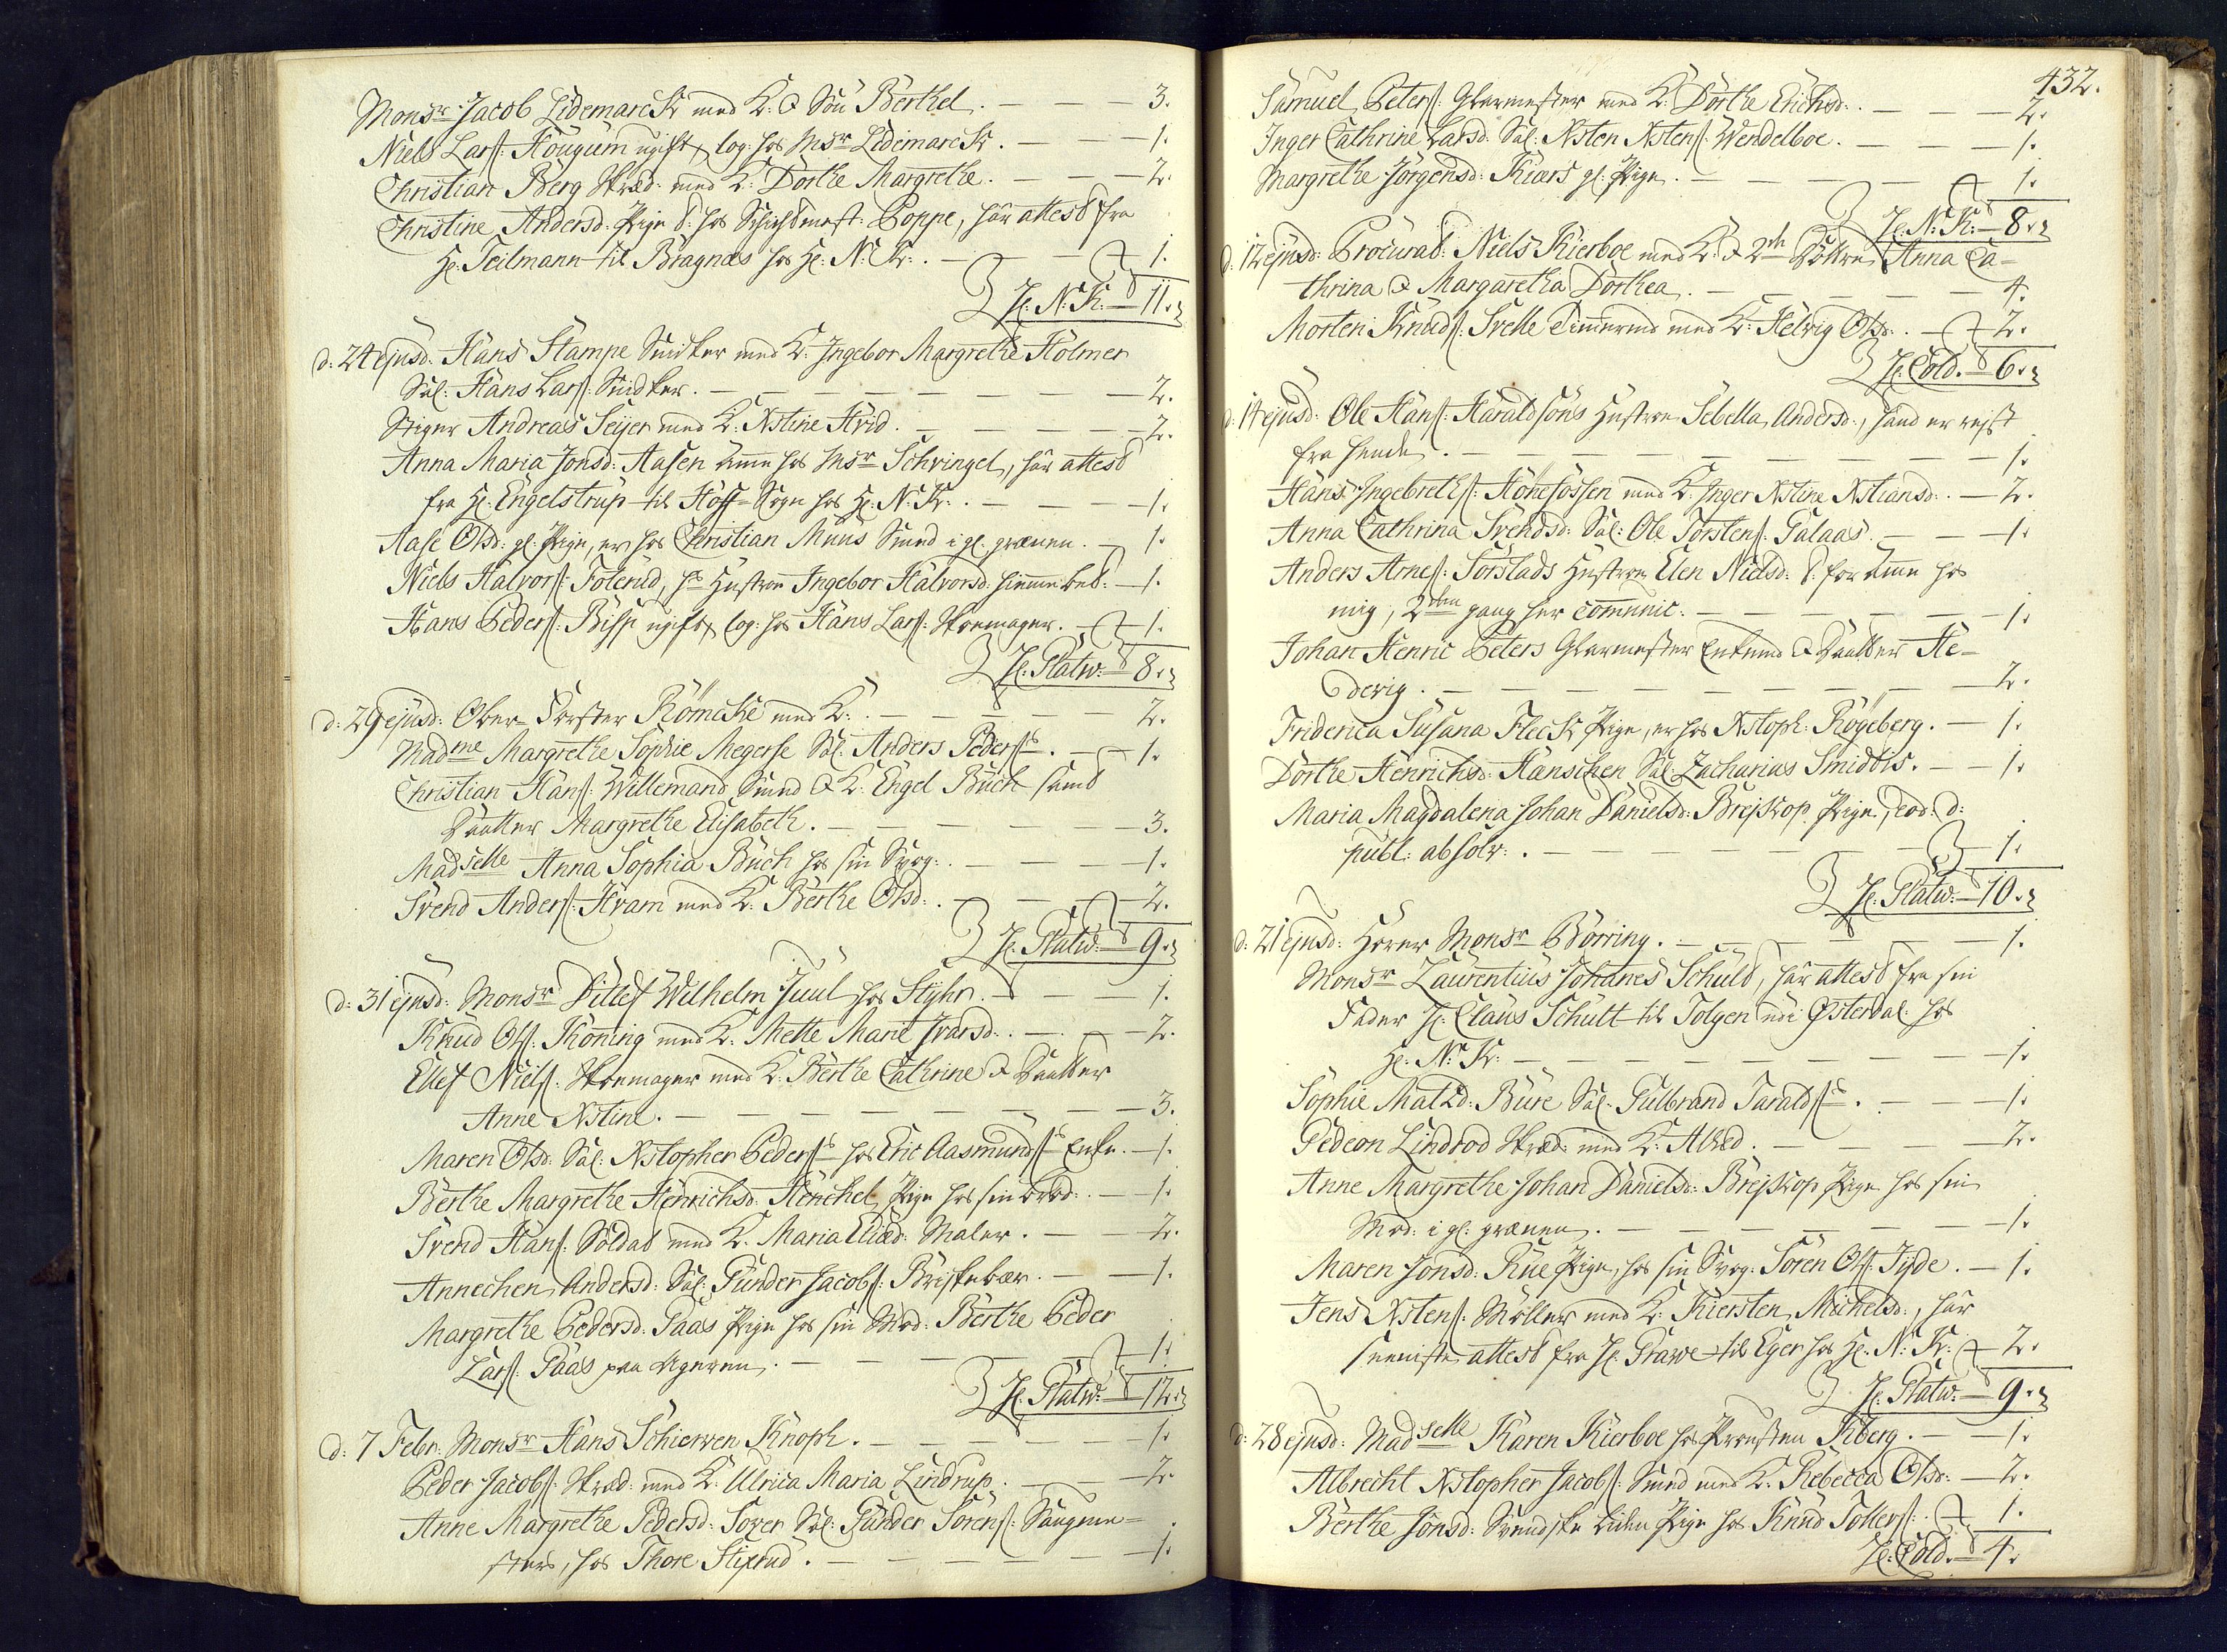 Monsr Jacob Lidemarck med K: & Sön Berthel. — — — 3.
Niels Lars: Hougum ugift, log: hos Msr Ledemarck. — — 1.
Christian Berg Skræd: med K: Dorthe Margrethe. — — — 2.
Christine Andersd: Pige t: hos Schichtmest: Poppe, har attest fra
Hr: Teilmann til Bragnæs hos Hr: N: K: . — — — 1.
H: N: K: — 11.
d: 24 ejusd: Hans Stampe Snidker med K: Ingebor Margrethe Holmer
Sal: Hans Lars: Snidker. — — — — — — 2.
Stiger Andreas Seijer med K: Xstine Arid. — — — — 2.
Anna Maria Jonsd: Aasen Amme hos Msr Schringel, har attest
fra Hr: Engelstrup til Hoff-Sogn hos Hr: N: K: . — — — 1.
Aase Olsd: gl: Pige, er hos Christian Muus Smed i gl: grænen. — 1.
Niels Halvors: Foterud, hs Hustroe Ingebor Halvorsd: hiemme bet: — 1.
Hans Peders: Bisp ugift, log: hos Hans Lars: Skoemager. — 1.
H: Platw: — 8.
d: 29 ejusd: Ober-Forster Römcke med K: . — — — — 2.
Madme Margrethe Sophie Megerse Sal: Anders Peders: . — 1.
Christian Hans: Willemand Smed & K: Engel Buch samt
Daatter Margrethe Elisabeth. — — — — — 3.
Madselle Anna Sophia Buch hos sin Svog: . — — — 1.
Svend Anders: Hram med K: Berthe Olsd: . — — 2.
H: Platw: — 9.
d: 31 ejusd: Monsr Ditlef Wilhelm Juul hos Styhr. — — 1.
Knud Ols: Köning med K: Mette Marie Ivarsd: . — — 2.
Ellef Niels: Skoemager med K: Berthe Cathrine & Daatter
Anne Xstine. — — — — — — — 3.
Maren Olsd: Sal: Xstopher Peders: hos Eric Aasmunds: Enke. — 1.
Berthe Margrethe Henrichsd: Henchel Pige hos sin Brod: . — 1.
Svend Hans: Soldat med K: Maria Eliæd: Maler. — — 2.
Annechen Andersd: Sal: Gunder Jacobs: Briskebær. — — 1.
Margrethe Pedersd: Paas Pige hos sin Mod: Berthe Peder
Lars: Paas paa Ageren. — — — — — 1.
H: Platw: — 12.
d: 7 Febr: Monsr Hans Schierven Knoph. — — — — 1.
Peder Jacobs: Skræd: med K: Ulrica Maria Lindrup. — — 2.
Anne Margrethe Pedersd: Soxer Sal: Gunder Sörens: Saugme-
sters, hos Thore Stixrud. — — — — — — 1.
432.
Samuel Peters: Glarmester med K: Dorthe Erichsd: . — — — 2.
Inger Cathrine Larsd: Sal: Xsten Xstens: Wendelboe. — — — 1.
Margrethe Jörgensd: Kiærs gl: Pige. — — — — 1.
H: N: K: — 8.
d: 12 ejusd: Procurat: Niels Kierboe med K: & 2de Döttre Anna Ca-
thrina & Margaretha Dorthea. — — — — — 4.
Morten Knuds: Svelle Timermd med K: Helvig Olsd: . — 2.
H: Cold. — 6.
d: 14 ejusd: Ole Hans: Haraldsöns Hustroe Sebella Andersd:, hand er rejst
fra hende. — — — — — — — — 1.
Hans Ingebreths: Hönefossen med K: Inger Xstine Xstiansd: . — 2.
Anna Cathrina Svendsd: Sal: Ole Torstens: Galaas. — — — 1.
Anders Arnes: Torstads Hustroe Elen Nielsd: t: for Amme hos
mig, 2den gang her comunic: — — — — — 1.
Johan Henric Peters Glarmester Enkemd & Daatter He-
devig. — — — — — — — — 2.
Friderica Susana Fleck Pige, er hos Xstoph: Rögeberg. — 1.
Dorthe Henrichsd: Hænschen Sal: Zacharias Smidts. — — 1.
Maria Magdalena Johan Danielsd: Brejskop Pige, eod: d:
publ: absolv: . — — — — — — 1.
H: Platw: — 10.
d: 21 ejusd: Hörer Monsr Börring. — — — — — 1.
Monsr Laurentius Johanes Schult, har attest fra sin
Fader Hr: Claus Schult til Tolgen udi Østerdal: hos
Hr: N: K: — — — — — — — — 1.
Sophie Matzd: Bure Sal: Gulbrand Taralds: . — — — 1.
Gedeon Lindrod Skræd: med K: Alhed. — — — 2.
Anne Margrethe Johan Danielsd: Brejskop Pige hos sin
Mod: i gl: grænen. — — — — — — 1.
Maren Jonsd: Rue Pige, hos sin Svog: Sören Ols: Tyde. — 1.
Jens Xstens: Möller med K: Kiersten Michelsd:, har
seeniste attest fra Hr: Grawe til Eger hos Hr: N: K: — 2.
H: Platw: — 9.
d: 28 ejusd: Madselle Karen Kierboe hos Provsten Kiberg. — — 1.
Albrecht Xstopher Jacobs: Smed med K: Rebecca Olsd: — 2.
Berthe Jonsd: Svendske liden Pige hos Knud Tollefs: . — 1.
H: Cold. — 4.